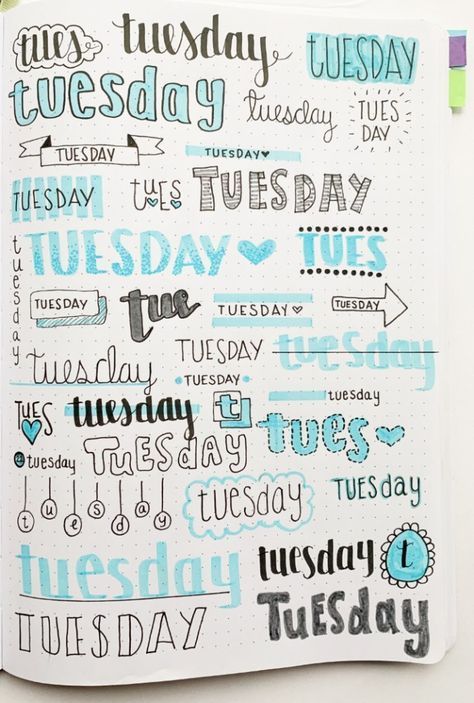 tues tuesday TUESDAY
tuesday tuesday TUES
DAY
TUESDAY TUESDAY♥
TUESDAY tUES TUESDAY
tuesday TUESDAY TUES
TUESDAY tue TUESDAY♡ TUESDAY
tuesday TUESDAY tuesday
TUESDAY
TUES tuesday t tuesday
tues
tuesday TUESDAY
tuesday tuesday TUESday
tuesday tuesday t
TUESDAY TUESDAY